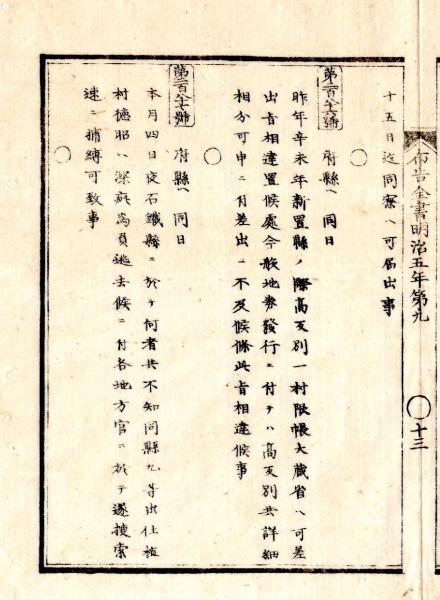 布告全書明治五年第九
〇十三
十五日迄同寮ヘ可届出事
〇
第二百八十六號
府縣ヘ 同日
昨年辛未年新置縣ノ際高反別一村限帳大蔵省ヘ可差
出旨相達置候處今般地券發行ニ付テハ高反別共詳細
相分可申ニ付差出ニ不及候條此旨相達候事
〇
第二百八十七號
府縣ヘ 同日
本月四日夜石鐵縣ニ於テ何者共不知同縣九等出仕植
村徳昭ヘ深疵為負逃去候ニ付各地方官ニ於テ遂捜索
速ニ捕縛可致事